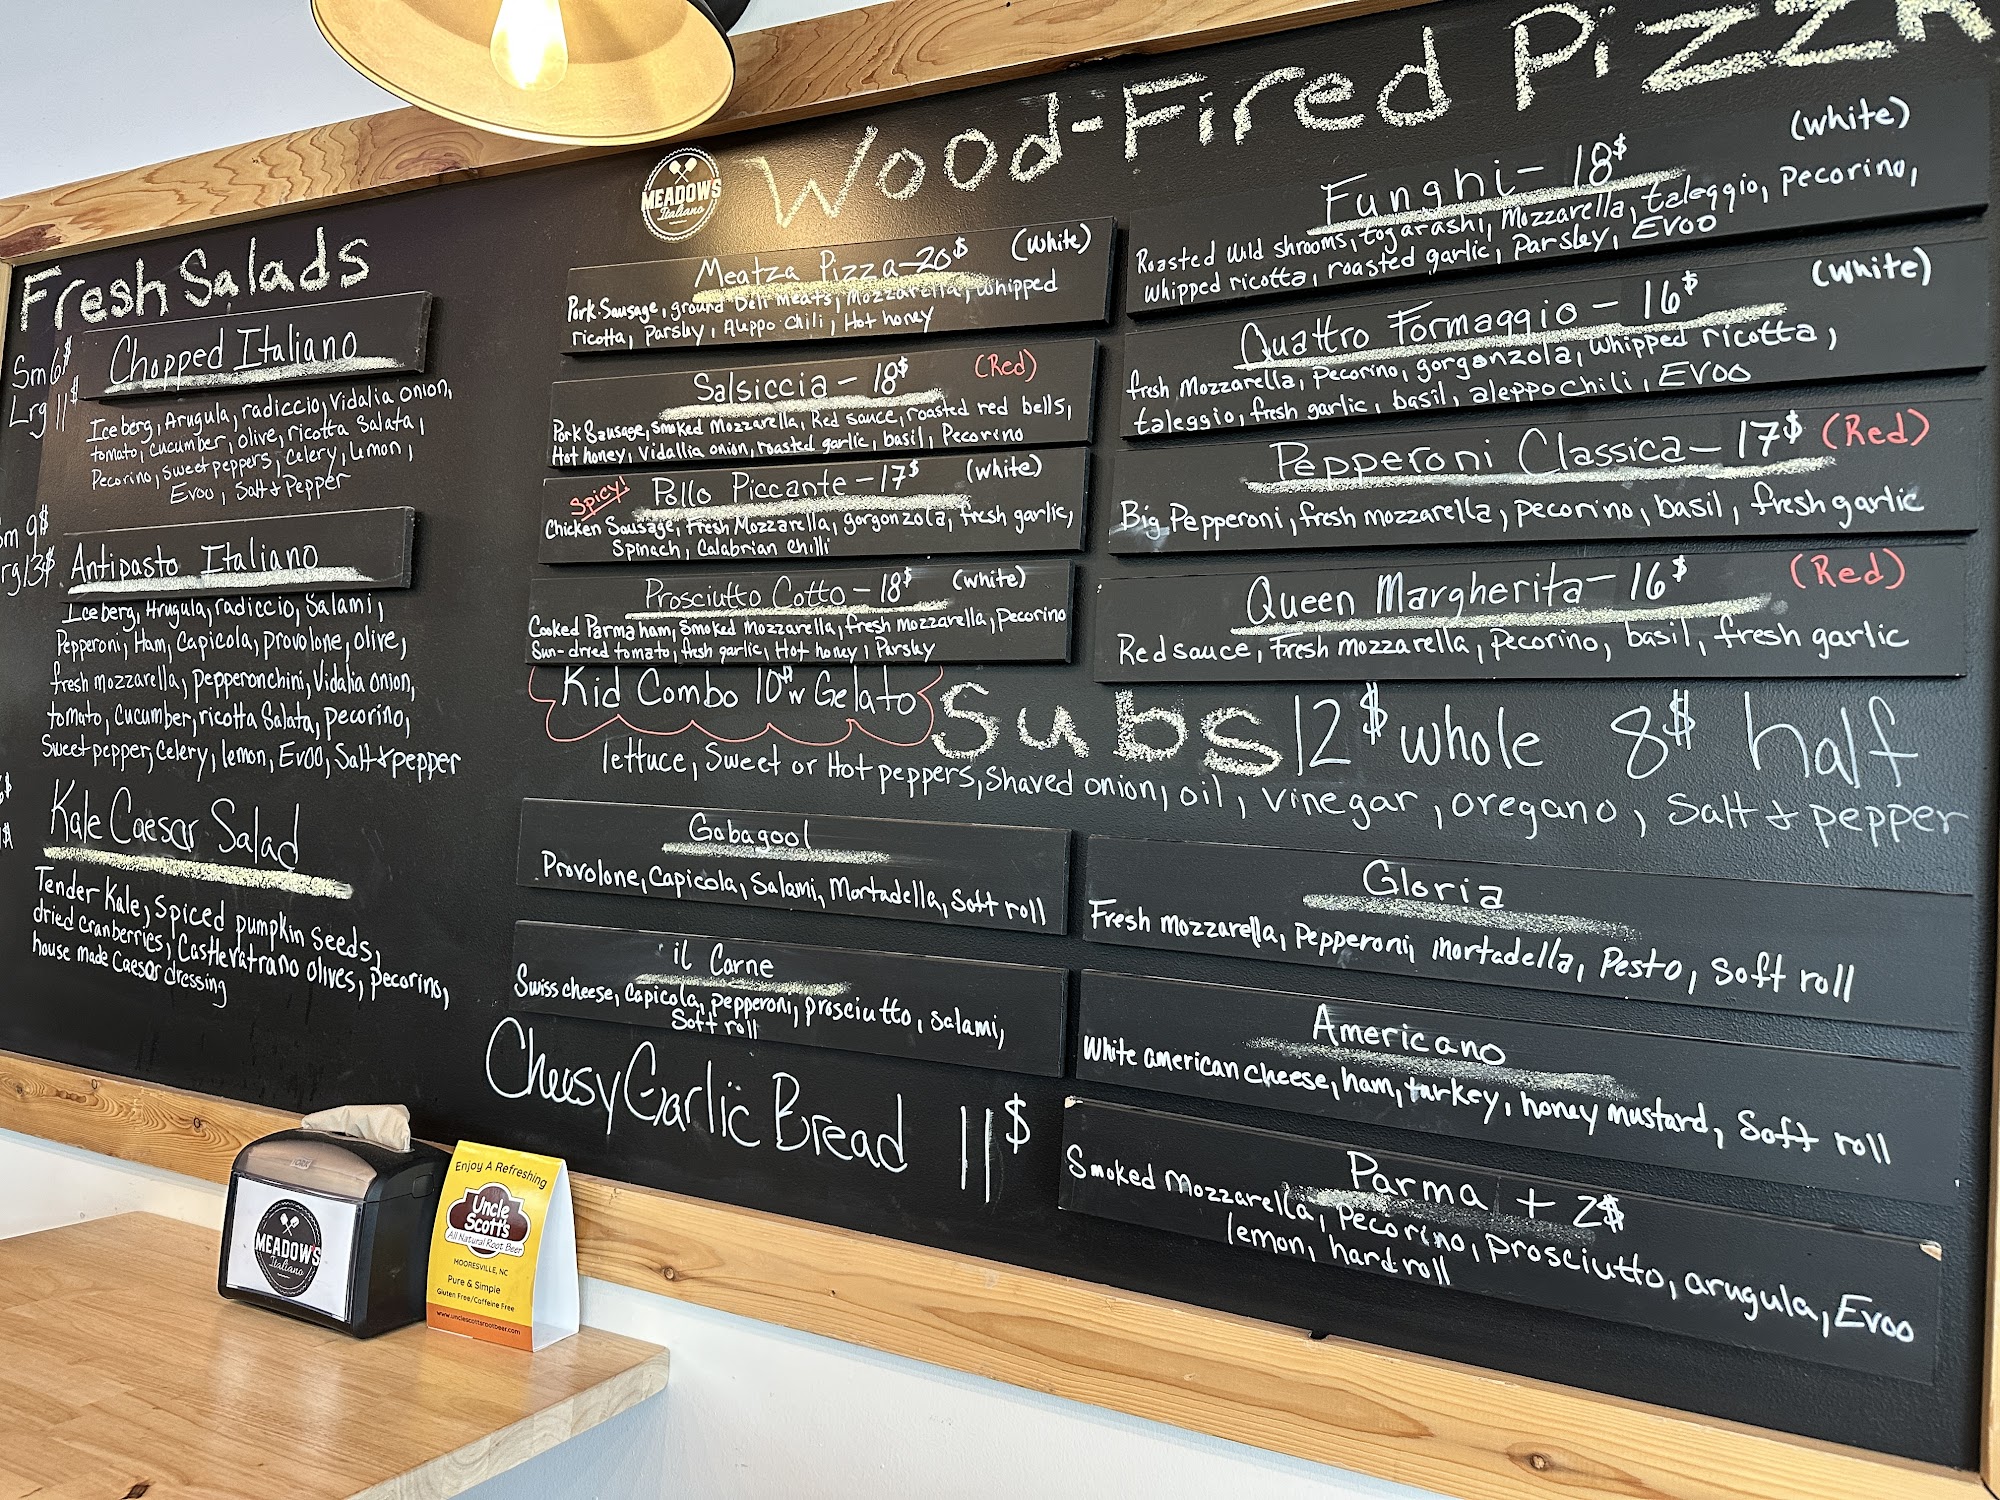 Wood-Fired Pizza
MEADOWS
Italiano
Fresh Salads
Sm 6$
Lrg 11$
Chopped Italiano
Iceberg, Arugula, radiccio, Vidalia onion,
tomato, cucumber, olive, ricotta Salata,
Pecorino, sweet peppers, Celery, Lemon,
Evoo, Salt & Pepper
m 9$
rg 13$
Antipasto Italiano
Iceberg, Arugula, radiccio, Salami,
Pepperoni, Ham, Capicola, provolone, olive,
fresh mozzarella, pepperonchini, Vidalia onion,
tomato, cucumber, ricotta Salata, pecorino,
Sweet pepper, Celery, lemon, Evoo, Salt & pepper
Kale Caesar Salad
Tender Kale, Spiced pumpkin Seeds,
dried cranberries, Castlevatrano olives, pecorino,
house made Caesar dressing
Meatza Pizza - 20$ (white)
Pork Sausage, ground Deli meats, Mozzarella, whipped
ricotta, Parsley, Aleppo chili, Hot honey
Salsiccia - 18$ (Red)
Pork Sausage, Smoked Mozzarella, Red sauce, roasted red bells,
Hot honey, Vidallia onion, roasted garlic, basil, Pecorino
Spicy! Pollo Piccante - 17$ (white)
Chicken Sausage, Fresh Mozzarella, gorgonzola, fresh garlic,
Spinach, Calabrian chilli
Prosciutto Cotto - 18$ (white)
Cooked Parma ham, Smoked Mozzarella, fresh mozzarella, Pecorino
Sun-dried tomato, fresh garlic, Hot honey, Parsley
Funghi - 18$ (white)
Roasted wild shrooms, togarashi, Mozzarella, taleggio, pecorino,
whipped ricotta, roasted garlic, Parsley, Evoo
Quattro Formaggio - 16$ (white)
fresh Mozzarella, Pecorino, gorgonzola, whipped ricotta,
taleggio, fresh garlic, basil, aleppo chili, Evoo
Pepperoni Classica - 17$ (Red)
Big Pepperoni, fresh mozzarella, pecorino, basil, fresh garlic
Queen Margherita - 16$ (Red)
Red sauce, Fresh mozzarella, pecorino, basil, fresh garlic
Kid Combo 10" w Gelato
Subs 12$ whole 8$ half
lettuce, Sweet or Hot peppers, Shaved onion, oil, vinegar, oregano, Salt & pepper
Gabagool
Provolone, Capicola, Salami, Mortadella, Soft roll
il Carne
Swiss cheese, Capicola, pepperoni, prosciutto, salami,
Soft roll
Cheesy Garlic Bread 11$
Gloria
Fresh mozzarella, pepperoni, mortadella, Pesto, Soft roll
Americano
White american cheese, ham, turkey, honey mustard, Soft roll
Parma + 2$
Smoked Mozzarella, pecorino, prosciutto, arugula, Evoo
lemon, hard roll
MEADOWS
Italiano
Enjoy A Refreshing
Uncle
Scott's
All Natural Root Beer
MOORESVILLE, NC
Pure & Simple
Gluten Free/Caffeine Free
www.unclescottsrootbeer.com